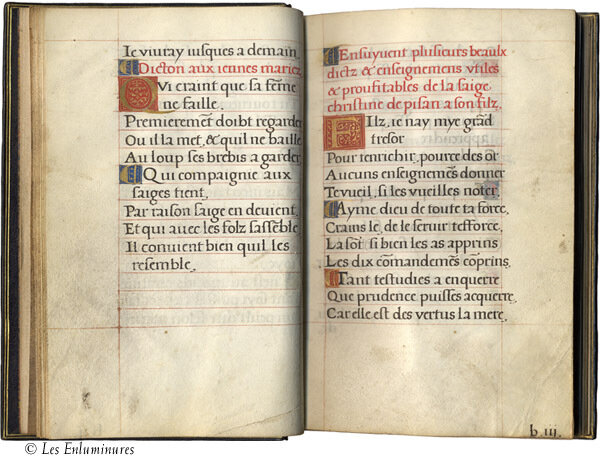 Ie viuray iusques a demain
Dicton aux iennes mariez
Qvi craint que sa fēme
ne faille.
Premieremēt doibt regarder
Ou il la met, & quil ne baille
Au loup ses brebis a garder
Qui compaignie aux
saiges tient,
Par raison saige en deuient,
Et qui auec les folz sassēble
Il conuient bien quil les
resemble.
Ensuyuent plusieurs beaulx
dictz & enseignemens vtiles
& proufitables de la saige
christine de pisan a son filz.
Filz, ie nay mye grād
tresor
Pour tenrichir, pource des or
Aucuns enseignemēs donner
Te vueil, si les vueilles noter
Ayme dieu de toute ta force,
Crains le, de le seruir tefforce,
La sot si bien les as apprins
Les dix comandemēs cōprins
Tant testudies a enquerre
Que prudence puisses acquerre
Car elle est des vertus la mere,
b.iij.
© Les Enluminures